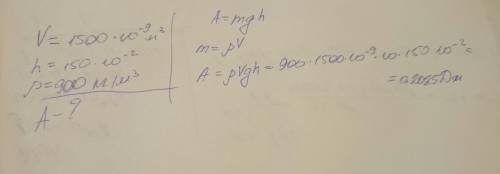 V = 1500 · 10⁻⁹ м³
h = 150 · 10⁻²
ρ = 900 м/м³
A - ?
A = mgh
m = ρV
A = ρVgh = 900 · 1500 · 10⁻⁹ · 10 · 150 · 10⁻² =